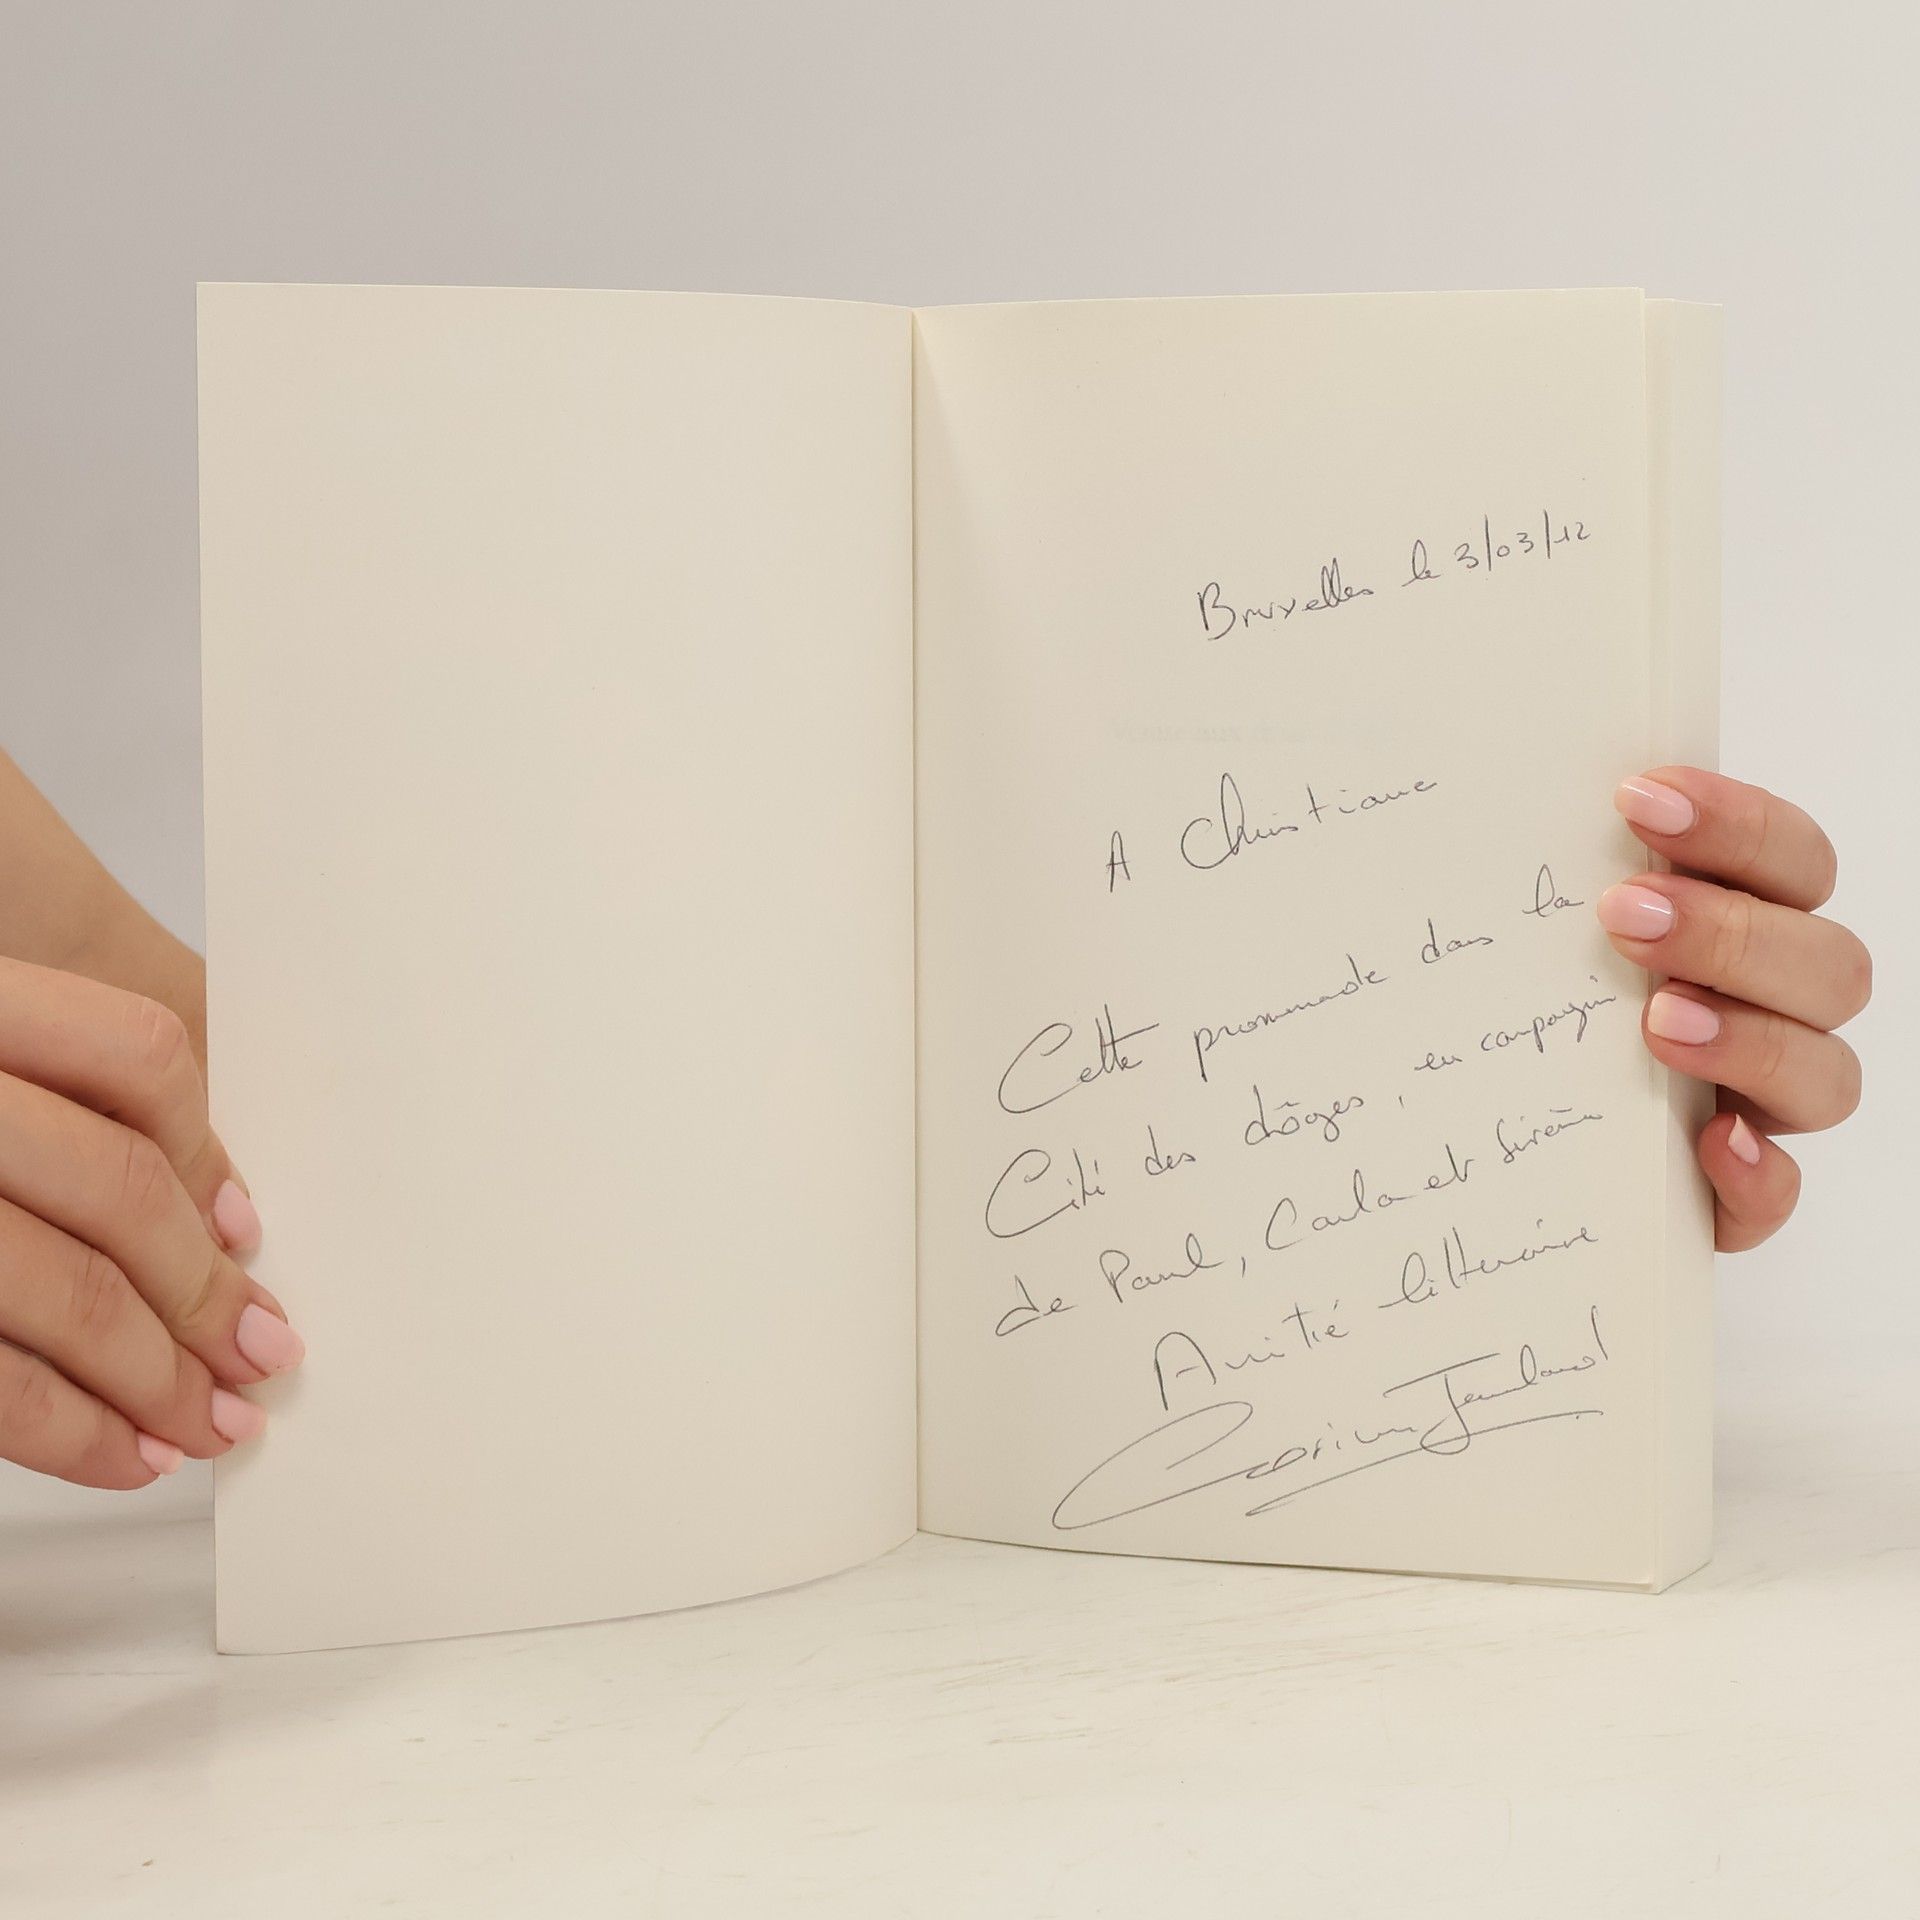 Bruxelles le 3/03/12
A Christiane
Cette promenade dans la
Cité des dôges, en compagnie
de Paul, Carla et Sirène
Amitié littéraire